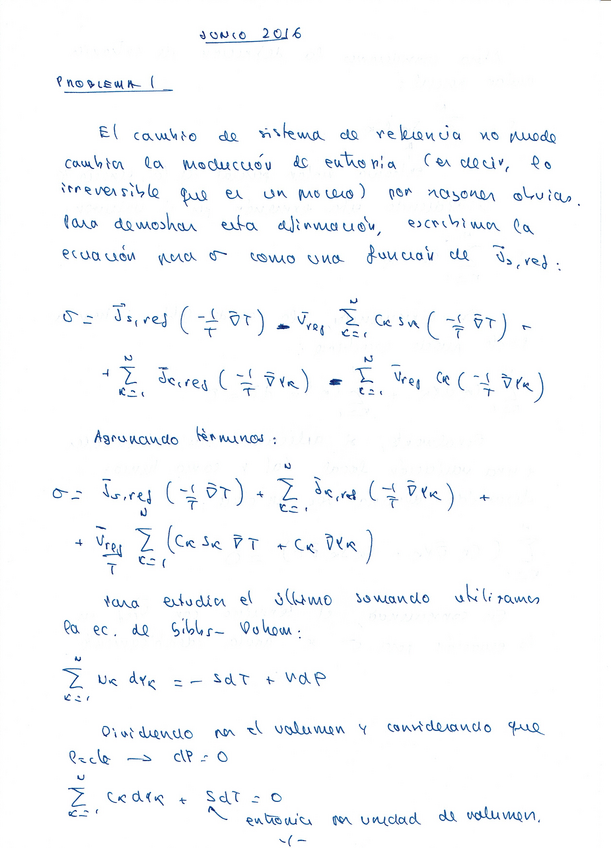 JUNIO 2016
PROBLEMA 1
El cambio de sistema de referencia no puede
cambiar la producción de entropía (es decir, lo
irreversible que es un proceso) por razones obvias.
Para demostrar esta afirmación, escribimos la
ecuación para σ como una función de J̄s,ref:
σ = J̄s,ref (-1/T ∇̄T) - v̄ref Σ_{k=1}^{N} Ck sk (-1/T ∇̄T) +
+ Σ_{k=1}^{N} J̄k,ref (-1/T ∇̄ψk) - Σ_{k=1}^{N} v̄ref Ck (-1/T ∇̄ψk)
Agrupando términos:
σ = J̄s,ref (-1/T ∇̄T) + Σ_{k=1}^{N} J̄k,ref (-1/T ∇̄ψk) +
+ v̄ref/T Σ_{k=1}^{N} (Ck sk ∇̄T + Ck ∇̄ψk)
Para estudiar el último sumando utilizamos
la ec. de Gibbs-Duhem:
Σ_{k=1}^{N} Nk dψk = - SdT + VdP
Dividiendo por el volumen y considerando que
P=cte → dP=0
Σ_{k=1}^{N} Ck dψk + SdT = 0
entropía por unidad de volumen.
-1-